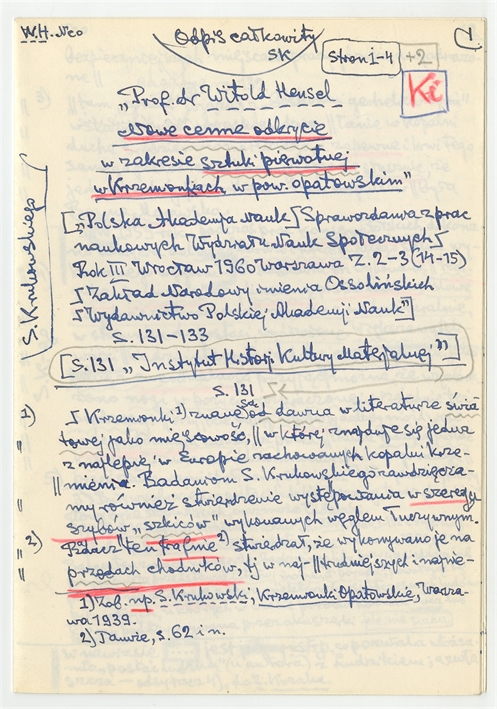 W.H. Neo
Odpis całkowity
SK
1
Stron 1-4
+2
Ki
„Prof. dr Witold Hensel
Nowe cenne odkrycie
w zakresie sztuki pierwotnej
w Krzemionkach, w pow. opatowskim”
[„Polska Akademja Nauk ∫ Sprawozdania z prac
naukowych Wydziału Nauk Społecznych ∫
Rok III Wrocław 1960 Warszawa Z. 2-3 (14-15)
∫ Zakład Narodowy imienia Ossolińskich
∫ Wydawnictwo Polskiej Akademji Nauk”]
S. 131-133
[S.131 „Instytut Historji Kultury Materjalnej”]
S. 131
S. Krukowskiego
1) ∫ Krzemionki 1) znane są od dawna w literaturze świa
towej jako miejscowość, || w której znajduje się jedna
z najlepiej w Europie zachowanych kopalni krze-
|| mienia. Badaniom S. Krukowskiego zawdzięcza-
my również stwierdzenie występowania w szeregu
szybów „szkiców” wykonanych węglem łuczywnym.
2) Badacz ten trafnie 2) stwierdzał, że wykonywano je na
przodach chodników, tj w naj-||trudniejszych i najnie-
1) Zob. np. S. Krukowski, Krzemionki Opatowskie, Warsza-
wa 1939.
2) Tamże, s. 62 i n.